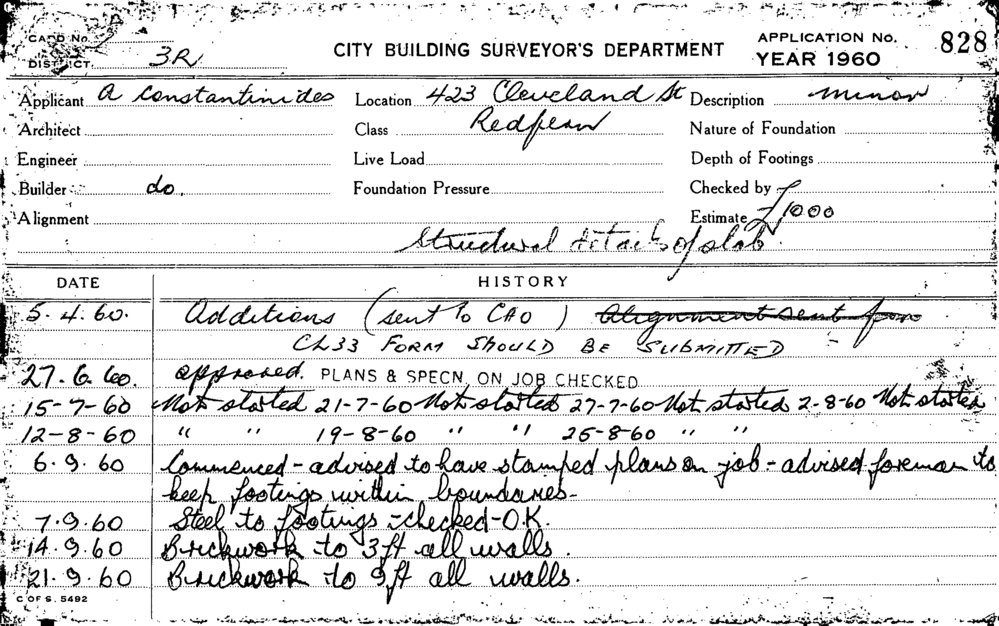 CARD No. CITY BUILDING SURVEYOR'S DEPARTMENT APPLICATION No. 828
DISTRICT. 3R YEAR 1960
Applicant A Constantinides Location 423 Cleveland St Description minor
Architect Class Redfern Nature of Foundation
Engineer Live Load Depth of Footings
Builder do. Foundation Pressure Checked by
Alignment Estimate £1000
Structural details of slab.
DATE HISTORY
5.4.60. Additions (sent to CAO) Alignment sent for
CL33 FORM SHOULD BE SUBMITTED
27.6.60. approved. PLANS & SPECN. ON JOB CHECKED
15-7-60 Not started 21-7-60 Not started 27-7-60 Not started 2-8-60 Not started
12-8-60 " " 19-8-60 " " 25-8-60 " "
6.9.60 Commenced - advised to have stamped plans on job - advised foreman to
keep footings within boundaries-
7.9.60 Steel to footings - checked - O.K.
14.9.60 Brickwork to 3ft all walls.
21.9.60 Brickwork to 9ft all walls.
C OF S. 5492